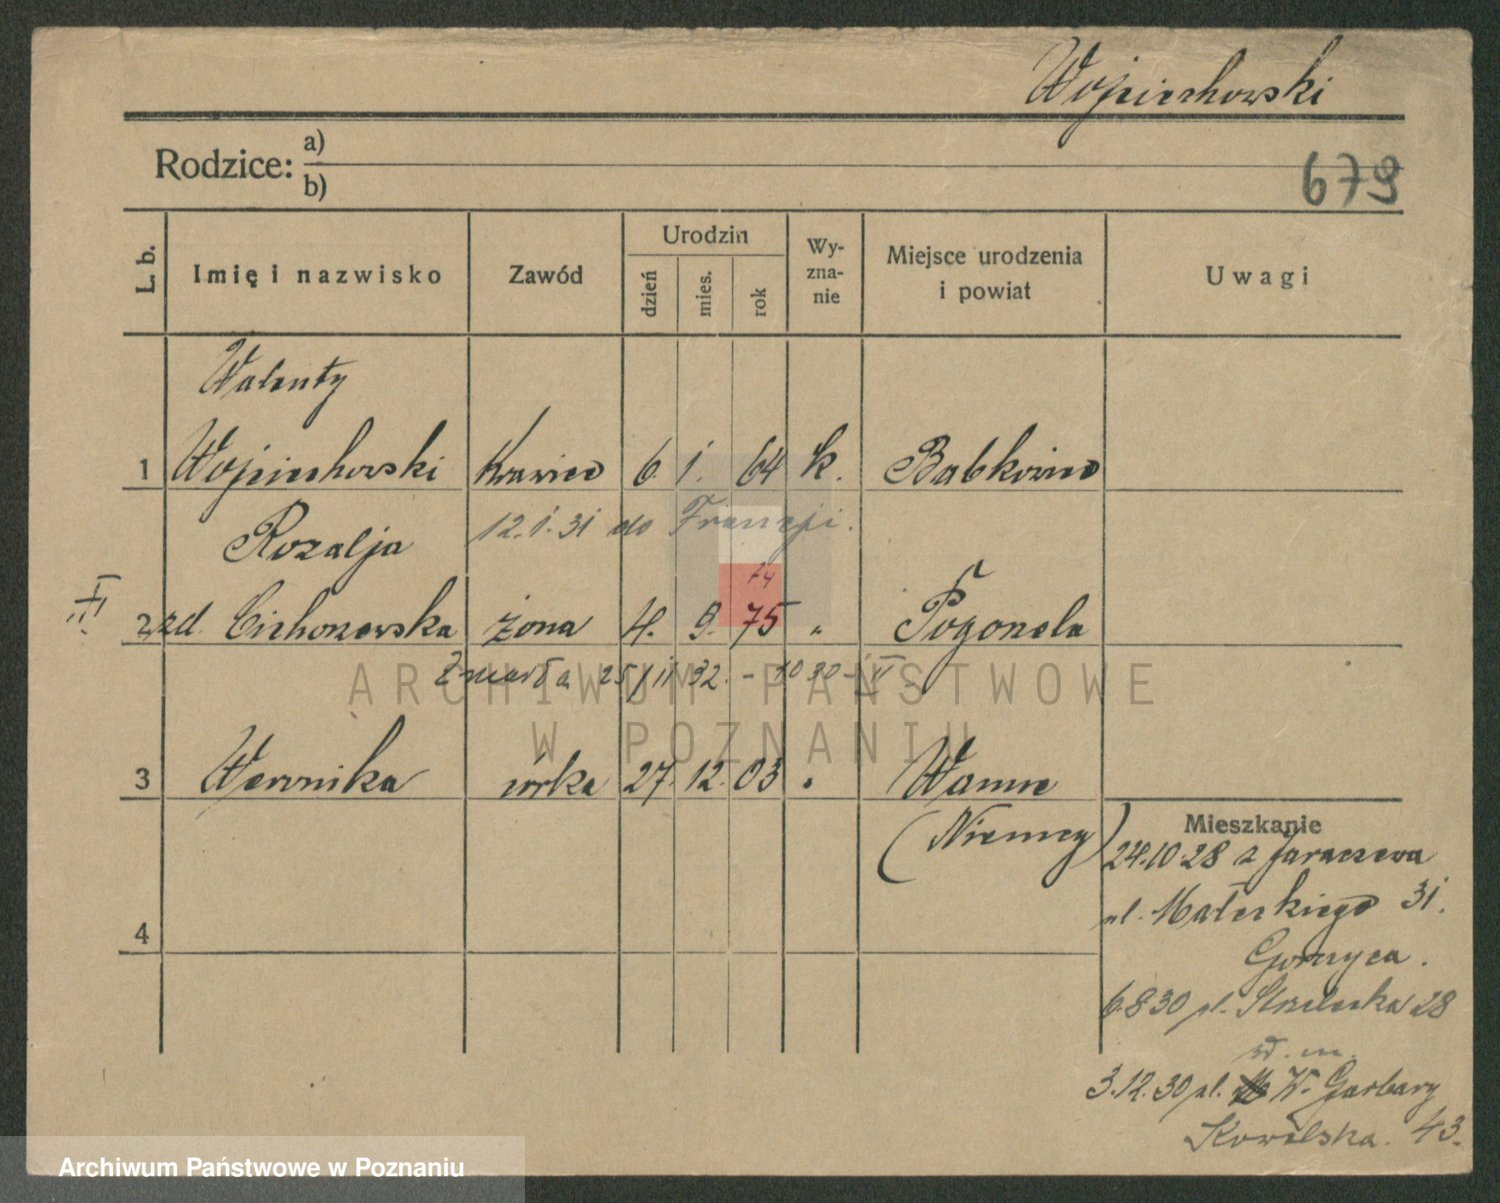 Wojciechowski
Rodzice: a)
b)
679
L. b.
Imię i nazwisko
Zawód
Urodzin
dzień
mies.
rok
Wy-
zna-
nie
Miejsce urodzenia
i powiat
Uwagi
Walenty
1 Wojciechowski krawiec 6. 1. 64 k. Babkowice
12.1.31 do Francji.
Rozalja
74
2 zd. Cichoszewska żona 4. 9. 75 „ Pogorzela
Zmarła 25/11 32.
3 Weronika córka 27. 12. 03 „ Wanne
(Niemcy)
4
Mieszkanie
24.10.28 z Jaraczewa
ul. Małeckiego 31.
6.8.30 ul. Strzelecka 28
wł. m.
3.12.30 ul. W. Garbary
43.
Kowalska.
ARCHIWUM PAŃSTWOWE
W POZNANIU
Archiwum Państwowe w Poznaniu